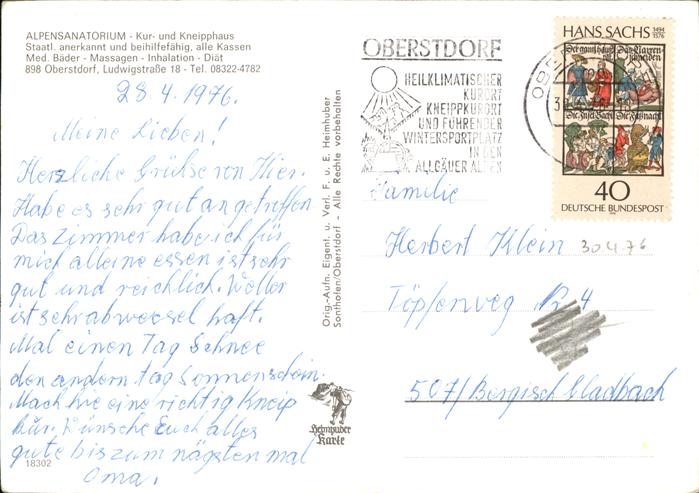 ALPENSANATORIUM - Kur- und Kneipphaus
Staatl. anerkannt und beihilfefähig, alle Kassen
Med. Bäder - Massagen - Inhalation - Diät
898 Oberstdorf, Ludwigstraße 18 - Tel. 08322-4782
28.4.1976.
Meine Lieben!
Herzliche Grükse von Hier.
Habe es sehr gut an getroffen
Das Zimmer habe ich für
mich alleine essen ist sehr
gut und reichlich. Wetter
ist sehr abwecsel haft.
Mal einen Tag Schnee
den andern tag Sonnenschein.
Mach hie eine richtig Kneip
Kur. Wünsche Euch alles
gute bis zum nägsten mal
Oma.
18302
Orig.-Aufn. Eigent. u. Verl. F. u. E. Heimhuber
Sonthofen/Oberstdorf - Alle Rechte vorbehalten
Heimhuber
Karte
OBERSTDORF
HEILKLIMATISCHER
KURORT
KNEIPPKURORT
UND FÜHRENDER
WINTERSPORTPLATZ
IN DEN
ALLGÄUER ALPEN
HANS SACHS 1494 1576
40
DEUTSCHE BUNDESPOST
Familie
Herbert Klein 30476
Töpfenweg Nr 4
507/Bergisch Gladbach